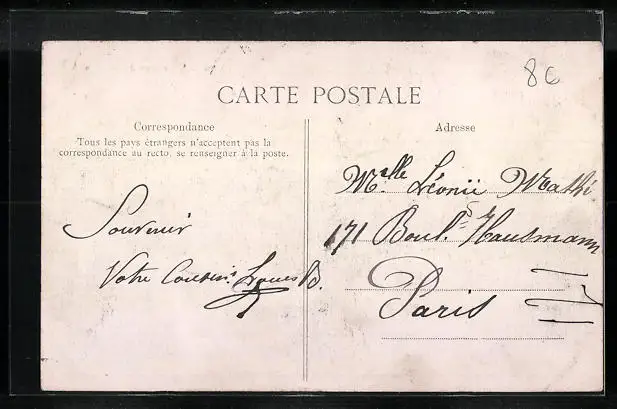 86
CARTE POSTALE
Correspondance
Tous les pays étrangers n'acceptent pas la
correspondance au recto, se renseigner à la poste.
Souvenir
Votre Cousin
Adresse
Melle Léonie Mathi
171 Boul.d Hausmann
Paris